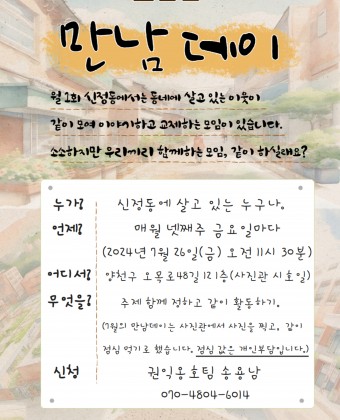 만남데이
월 1회 신정동에서는 동네에 살고 있는 이웃이
같이 모여 이야기하고 교제하는 모임이 있습니다.
소소하지만 우리끼리 함께하는 모임, 같이 하실래요?
누가? 신정동에 살고 있는 누구나.
언제? 매월 넷째주 금요일마다
(2024년 7월 26일(금) 오전 11시 30분)
어디서? 양천구 오목로48길 12 1층(사진관 시호일)
무엇을? 주제 함께 정하고 같이 활동하기.
(7월의 만남데이는 사진관에서 사진을 찍고, 같이
점심 먹기로 했습니다. 점심 값은 개인부담입니다.)
신청 권익옹호팀 송용남
070-4804-6014